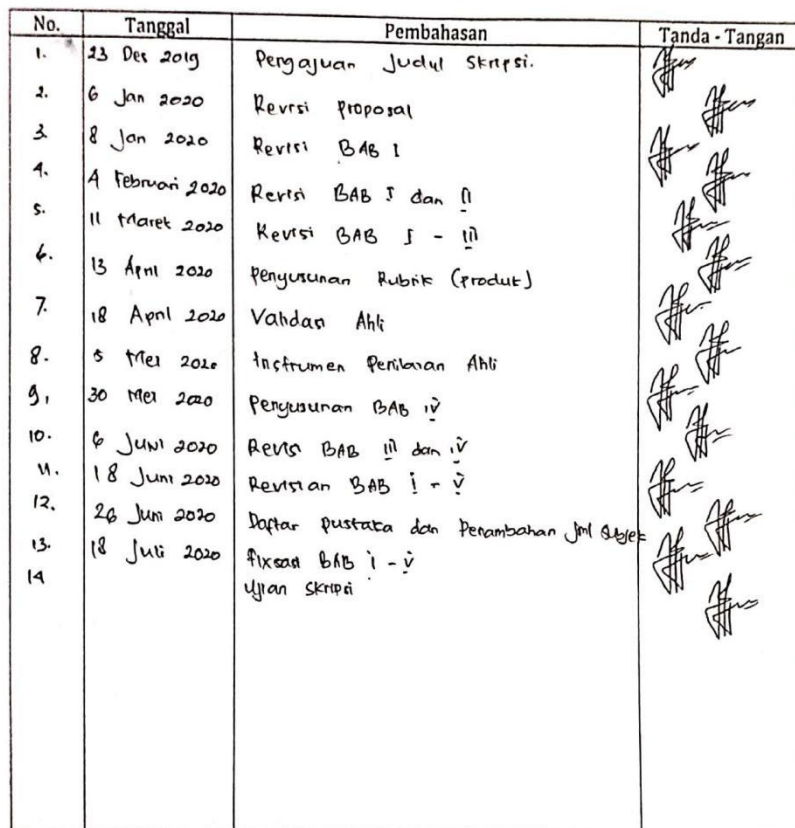 No. Tanggal Pembahasan Tanda - Tangan
1. 23 Des 2019 Pengajuan Judul Skripsi.
2. 6 Jan 2020 Revisi Proposal
3. 8 Jan 2020 Revisi BAB I
4. 4 Februari 2020 Revisi BAB I dan II
5. 11 Maret 2020 Revisi BAB I - III
6. 13 April 2020 Penyusunan Rubrik (Produk)
7. 18 April 2020 Validasi Ahli
8. 5 Mei 2020 Instrumen Penilaian Ahli
9. 30 Mei 2020 Penyusunan BAB IV
10. 6 Juni 2020 Revisi BAB III dan IV
11. 18 Juni 2020 Revisian BAB I - V
12. 26 Juni 2020 Daftar pustaka dan Penambahan Jml Subjek
13. 18 Juli 2020 Fixsasi BAB I - V
14 Ujian Skripsi